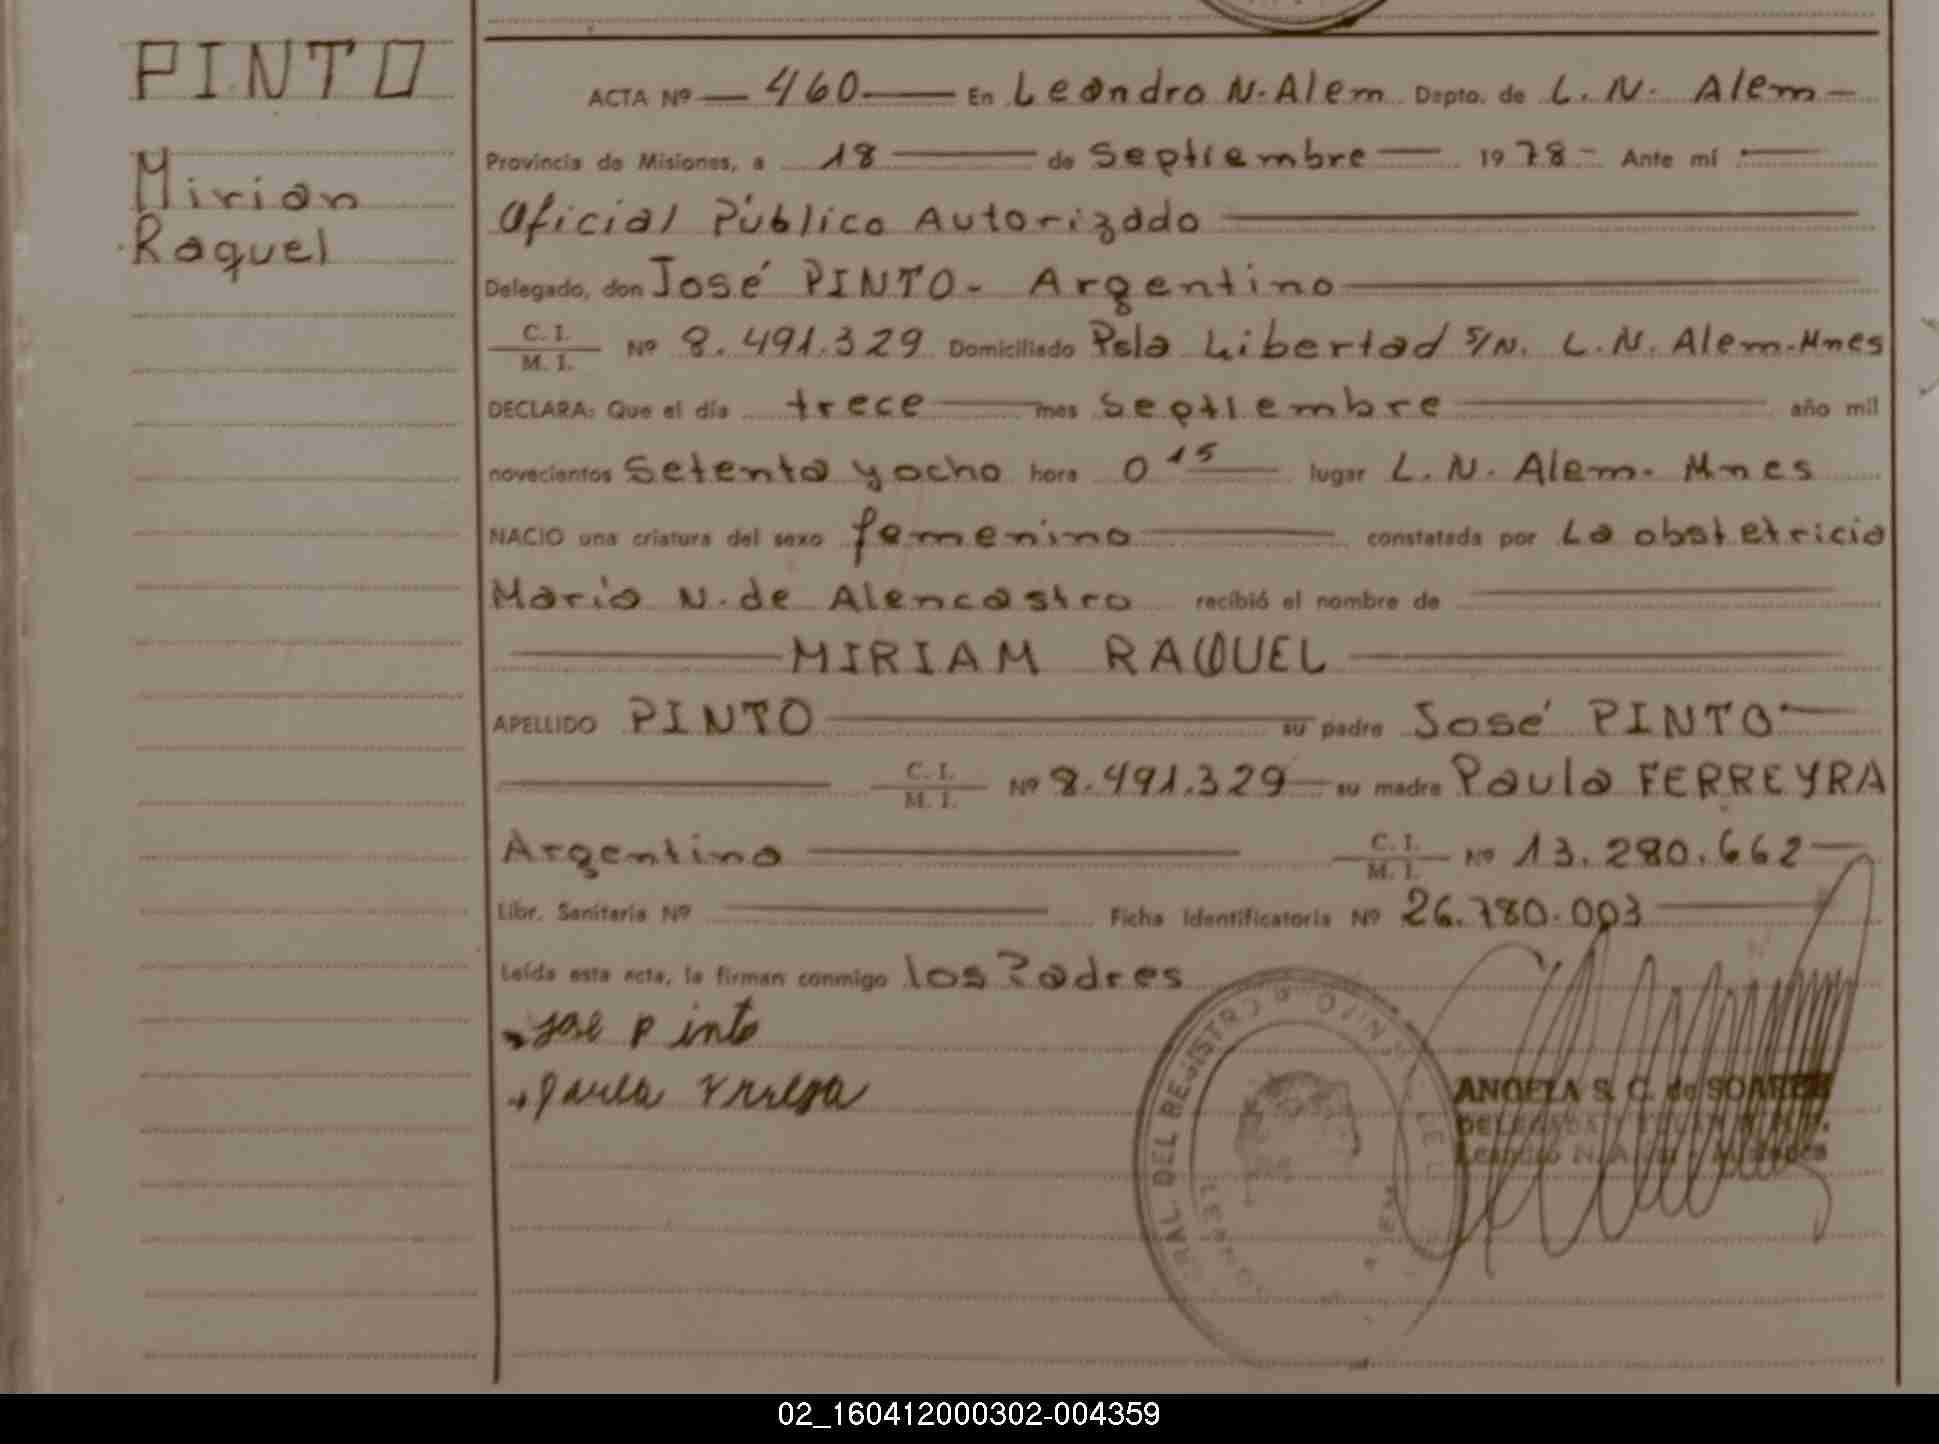 PINTO
Mirian
Raquel
ACTA Nº 460 En Leandro N. Alem Dpto. de L. N. Alem
Provincia de Misiones, a 18 de Septiembre 1978 - Ante mí
Oficial Público Autorizado
Delegado, don José PINTO - Argentino
C. I.
M. I. Nº 8.491.329 Domiciliado Pcia Libertad S/N. L. N. Alem - Mnes
DECLARA: Que el día trece mes Septiembre año mil
novecientos Setenta y ocho hora 0 15 lugar L. N. Alem - Mnes
NACIO una criatura del sexo femenino constatada por La obstetricia
Maria N. de Alencastro recibió el nombre de
MIRIAM RAQUEL
APELLIDO PINTO su padre José PINTO
C. I.
M. I. Nº 8.491.329 su madre Paula FERREYRA
Argentina C. I.
M. I. Nº 13.280.662
Libr. Sanitaria Nº Ficha Identificatoria Nº 26.780.003
Leída esta acta, la firman conmigo los Padres
jose pinto
paula
ANGELA S. C. de SOAREZ
Leandro N. Alem - Misiones
DEL REJISTRO
02_160412000302-004359